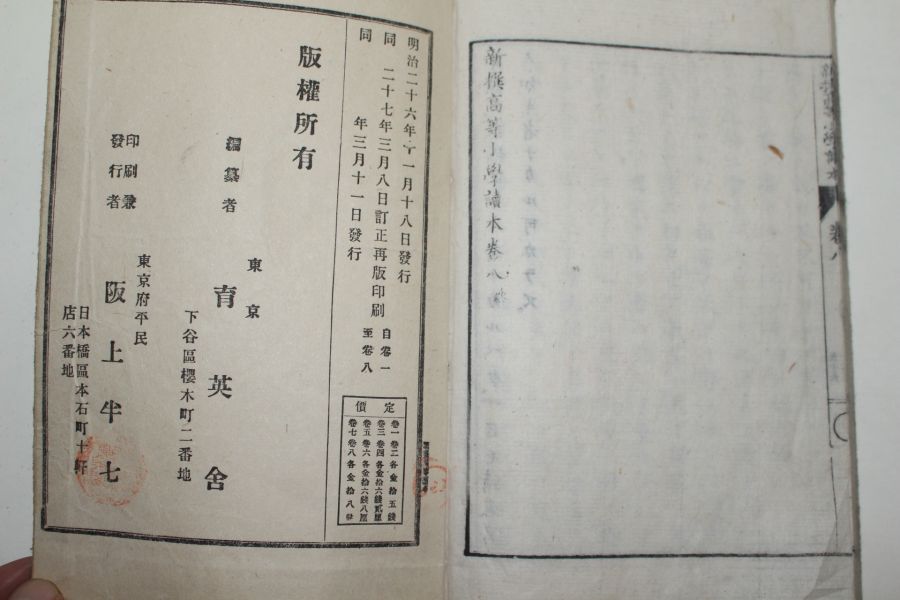 新撰高等小學讀本卷八
明治二十六年十一月十八日發行
同 二十七年三月八日訂正再版印刷
同 年三月十一日發行
自卷一
至卷八
定價
卷一卷二各金拾五錢
卷三卷四各金拾六錢貳厘
卷五卷六各金拾六錢八厘
卷七卷八各金拾八錢
版權所有
編纂者
東京
育英舍
下谷區櫻木町二番地
印刷兼
發行者
東京府平民
阪上半七
日本橋區本石町十軒
店六番地